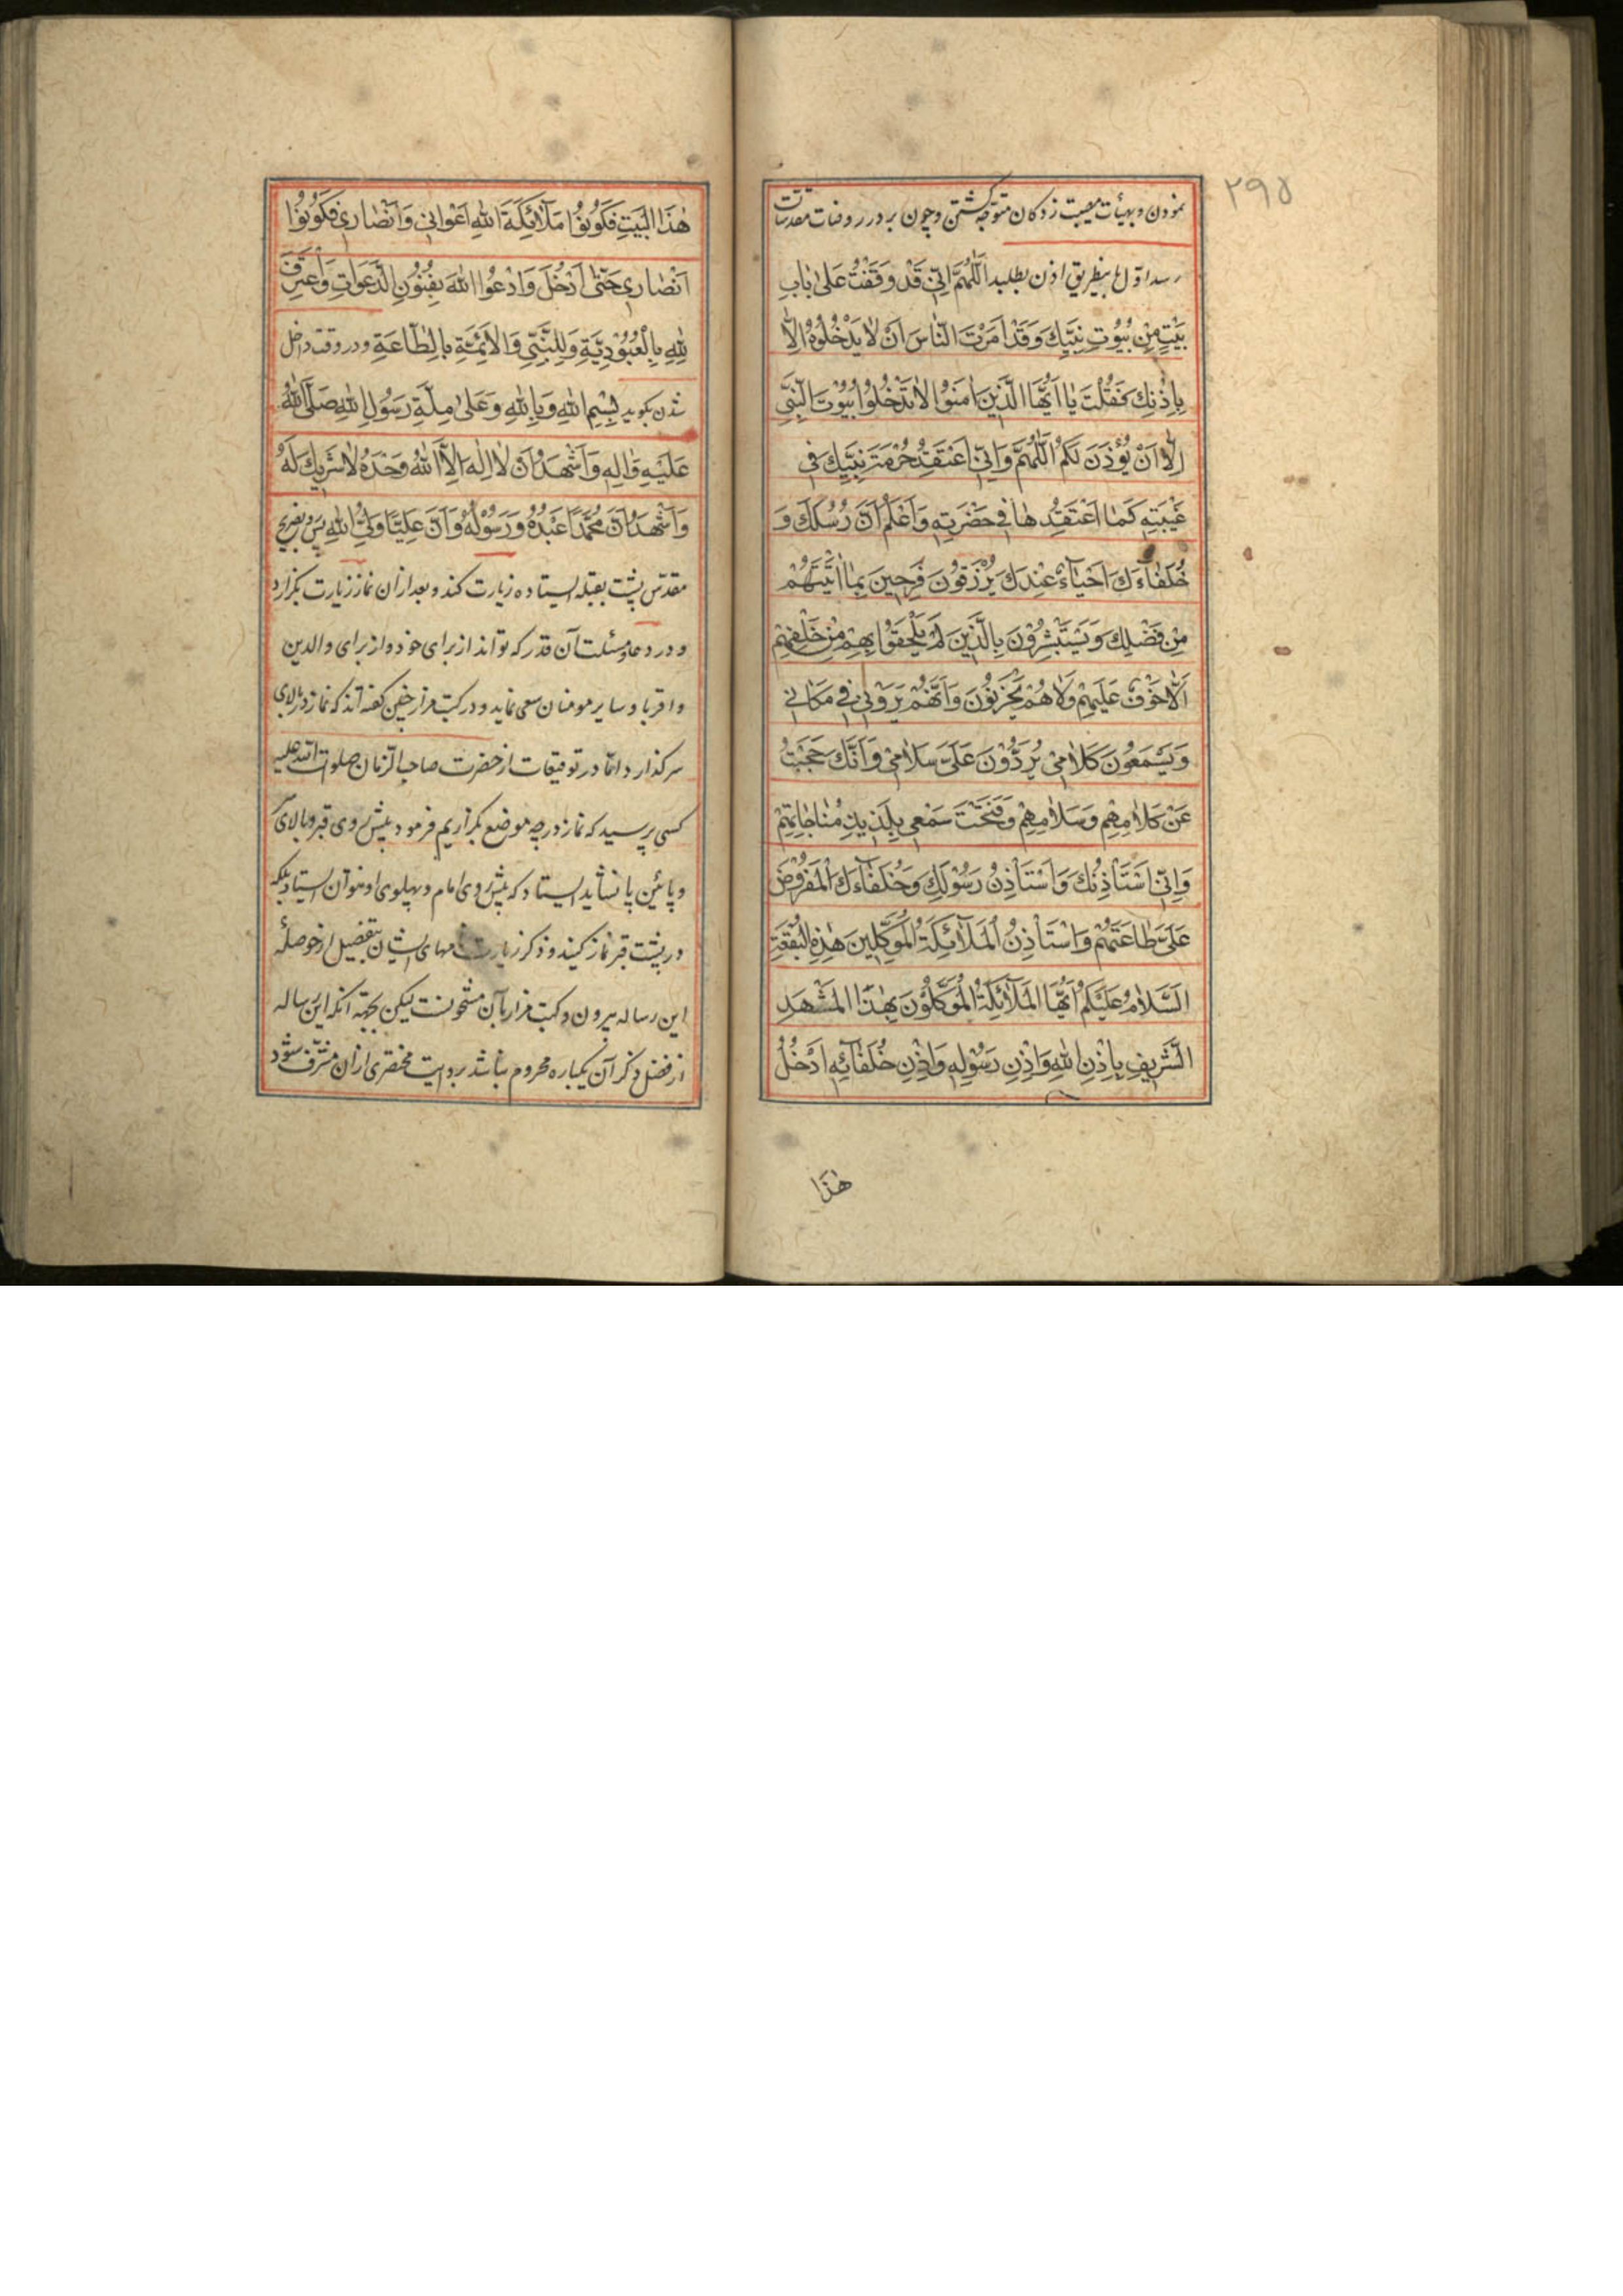 ۲۹۵
نمودن و بهیأت مصیبت زدکان متوجّه کشتن و چون بر در روضات مقدسات
رسد اوّل باینطریق اذن بطلبد اَللّٰهُمَّ اِنّی قَدْ وَقَفْتُ عَلیٰ بٰابِ
بَیْتٍ مِنْ بُیُوتِ نَبِیِّكَ وَقَدْ اَمَرْتَ النّٰاسَ اَنْ لٰا یَدْخُلُوهُ اِلّٰا
بِاِذْنِكَ فَقُلْتَ یٰا اَیُّهَا الَّذینَ اٰمَنُوا لٰا تَدْخُلُوا بُیُوتَ النَّبِیِّ
اِلّٰا اَنْ یُؤْذَنَ لَكُمْ اَللّٰهُمَّ وَاِنّی اَعْتَقِدُ حُرْمَةَ نَبِیِّكَ فی
غَیْبَتِهِ كَمٰا اَعْتَقِدُهٰا فی حَضْرَتِهِ وَاَعْلَمُ اَنَّ رُسُلَكَ وَ
خُلَفٰاءَكَ اَحْیٰآءٌ عِنْدَكَ یُرْزَقُونَ فَرِحینَ بِمٰا اٰتَیْتَهُمْ
مِنْ فَضْلِكَ وَیَسْتَبْشِرُونَ بِالَّذینَ لَمْ یَلْحَقُوا بِهِمْ مِنْ خَلْفِهِمْ
اَلّٰا خَوْفٌ عَلَیْهِمْ وَلٰا هُمْ یَحْزَنُونَ وَاَنَّهُمْ یَرَوْنی فی مَكٰانی
وَیَسْمَعُونَ كَلٰامی یَرُدُّوْنَ عَلَیَّ سَلٰامی وَاَنَّكَ حَجَبْتَ
عَنْ كَلٰامِهِمْ وَسَلٰامِهِمْ وَفَتَحْتَ سَمْعی بِلَذیذِ مُنٰاجٰاتِهِمْ
وَاِنّی اَسْتَأْذِنُكَ وَاَسْتَأْذِنُ رَسُوْلَكَ وَخُلَفٰآءَكَ الْمَفْرُوضَ
عَلَیَّ طٰاعَتُهُمْ وَاَسْتَأْذِنُ الْمَلٰآئِكَةَ الْمُوَكِّلینَ هٰذِهِ الْبُقْعَةِ
اَلسَّلٰامُ عَلَیْكُمْ اَیُّهَا الْمَلٰآئِكَةُ الْمُوَكَّلُوْنَ بِهٰذَا الْمَشْهَدِ
الشَّریفِ بِاِذْنِ اللّٰهِ وَاِذْنِ رَسُوْلِهِ وَاِذْنِ خُلَفٰآئِهِ اَدْخُلُ
هٰذَا
هٰذَا الْبَیْتَ فَكُونُوْا مَلٰآئِكَةَ اللّٰهِ اَعْوٰانی وَاَنْصٰاری فَكُونُوْا
اَنْصٰاری حَتّٰی اَدْخُلَ وَاَدْعُوَا اللّٰهَ بِفُنُوْنِ الدَّعَوٰاتِ وَاَعْتَرِفَ
لِلّٰهِ بِالْعُبُوْدِیَّةِ وَلِلنَّبِیِّ وَالْاَئِمَّةِ بِالطّٰاعَةِ و در وقت داخل
شدن بکوید بِسْمِ اللّٰهِ وَبِاللّٰهِ وَعَلیٰ مِلَّةِ رَسُوْلِ اللّٰهِ صَلَّی اللّٰهُ
عَلَیْهِ وَاٰلِهِ وَاَشْهَدُ اَنْ لٰا اِلٰهَ اِلَّا اللّٰهُ وَحْدَهُ لٰا شَریكَ لَهُ
وَاَشْهَدُ اَنَّ مُحَمَّدًا عَبْدُهُ وَرَسُوْلُهُ وَاَنَّ عَلِیًّا وَلِیُّ اللّٰهِ پس بضریح
مقدّس پشت بقبله ایستاده زیارت کند و بعد از ان نماز زیارت بکزارد
و در دعا و مسئلت آن قدر که تواند از برای خود و از برای والدین
و اقربا و سایر مومنان سعی نماید و در کتب مزار چنین کفته اند که نماز در بالای
سر کذارد امّا در توقیعات از حضرت صاحب الزّمان صلوات اللّه علیه
کسی پرسید که نماز در چه موضع بکزاریم فرمود پیش روی قبر و بالای
و پائین پا نشاید ایستاد که پیش روی امام و پهلوی او نتوان ایستاد بلکه
در پشت قبر نماز کنید و ذکر زیارت نامهای ایشان بتفصیل از حوصلهٔ
این رساله بیرون و کتب مزار بآن مشحونست لیکن بجهة آنکه این رساله
از فضل ذکر آن یکباره محروم نباشد بروایت مختصری از ان مشرّف شود